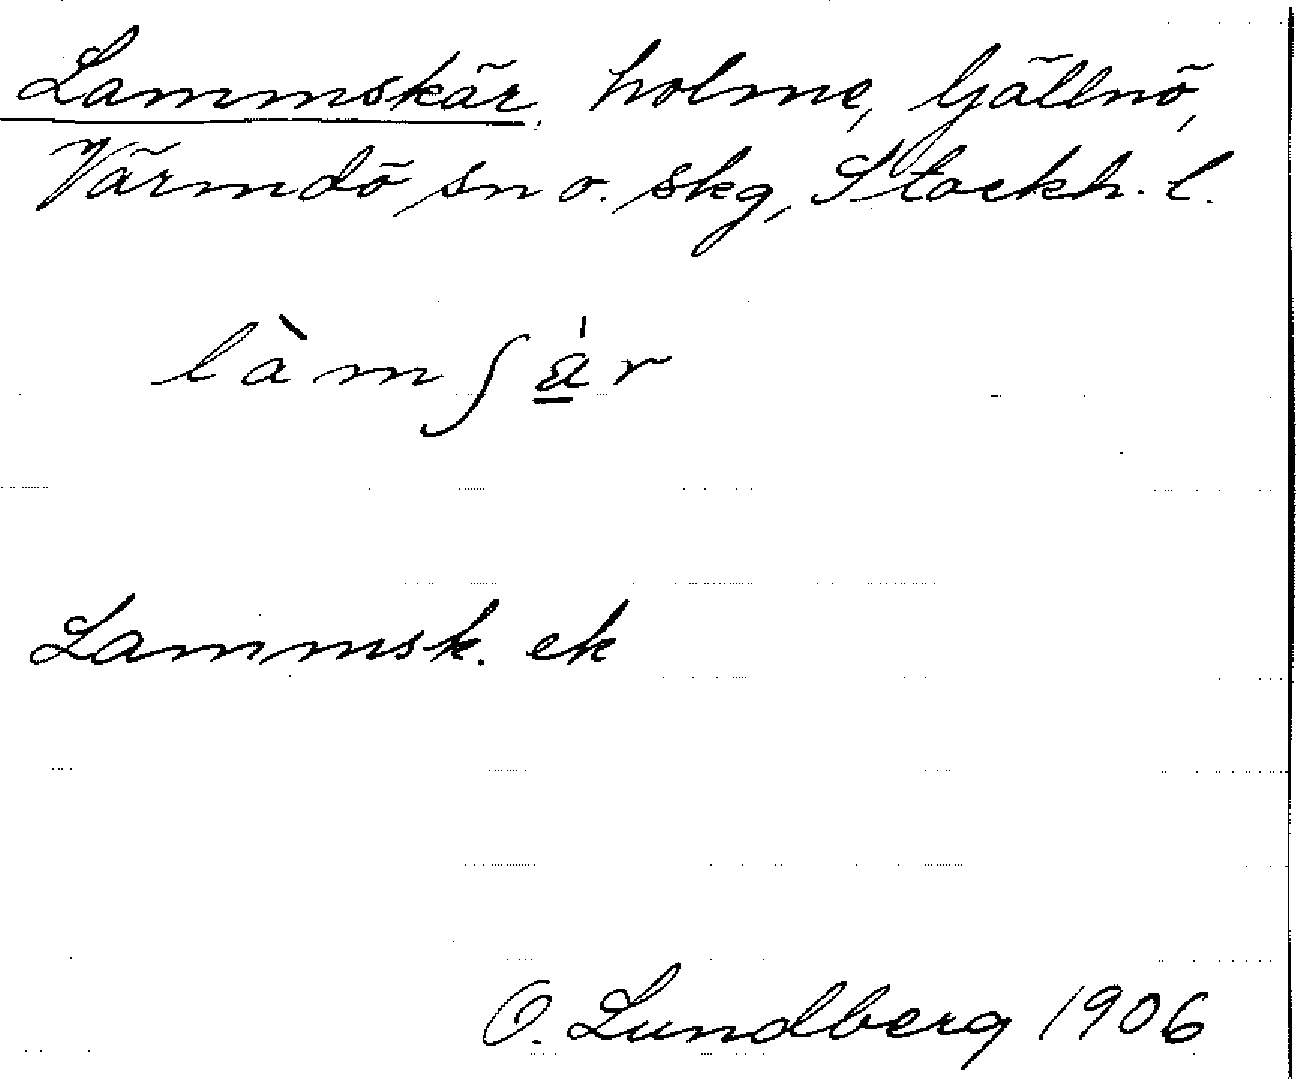 Lammskär, holme, Gällnö,
Värmdö sn o. skg, Stockh. l.
làmʃä̱́r
Lammsk. ek
O. Lundberg 1906